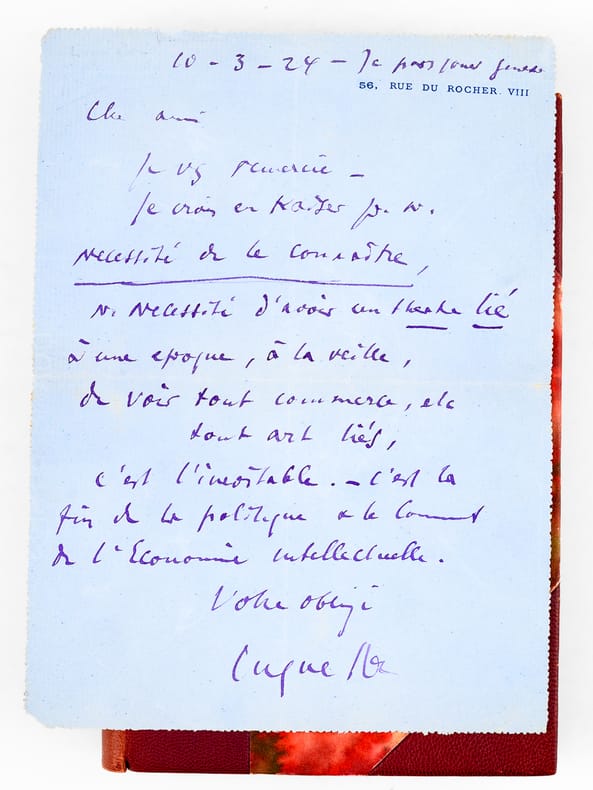 10-3-24 - Je pars pour Genève
56, RUE DU ROCHER. VIII
Cher ami
Je vs remercie -
Je crois en Kaiser p. n.
Necessité de le connaître,
n. Necessité d'avoir un theatre lié
à une epoque, à la veille,
de voir tout commerce, etc
tout art liés,
c'est l'inevitable. - c'est la
fin de la politique & le Comment
de l'Economie intellectuelle.
Votre obligé